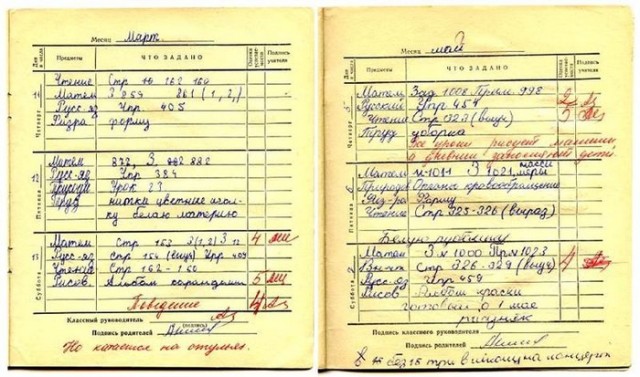 Месяц Март
Дни и числа Предметы ЧТО ЗАДАНО Оценка успеваемости Подпись учителя
Четверг 11
Чтение Стр 162 160
Матем З 259 261 (1, 2,)
Русс яз Упр. 405
Физра форму
Пятница 12
Матем З. 882
Русс-яз Упр 384
Природа Урок 23
Труд нитки цветные иголку белую материю
Суббота 13
Матем Стр 153 З (1,2) 4
Русс-яз Стр 154 (выуч) Упр 407
Чтение Стр 162-160
Рисов. Альбом карандаши 5
Поведение 4
Классный руководитель
(подпись)
Подпись родителей
Но катается на стульях.
Месяц май
Предметы ЧТО ЗАДАНО Оценка успеваемости Подпись учителя
Четверг 5
Матем Зад 1006 Прим 998 2
Русский Упр 457 5
Чтение Стр 323 (выуч)
Труд уборка
Все уроки рисует машины
в дневнике
Пятница 6
массы
Матем N-1011 З 1021 меры
Природа Органы кровообращения
Физ-ра Форму
Чтение Стр 325-326 (выраз)
Белую рубашку
Суббота
Матем З N 1000 Прм 1023 4
Вн.чт Стр 326-329 (выуч)
Русс яз Упр 459
Рисов Альбом краски
готовый о 1 мае
рисунок
Подпись классного руководителя
Подпись родителей